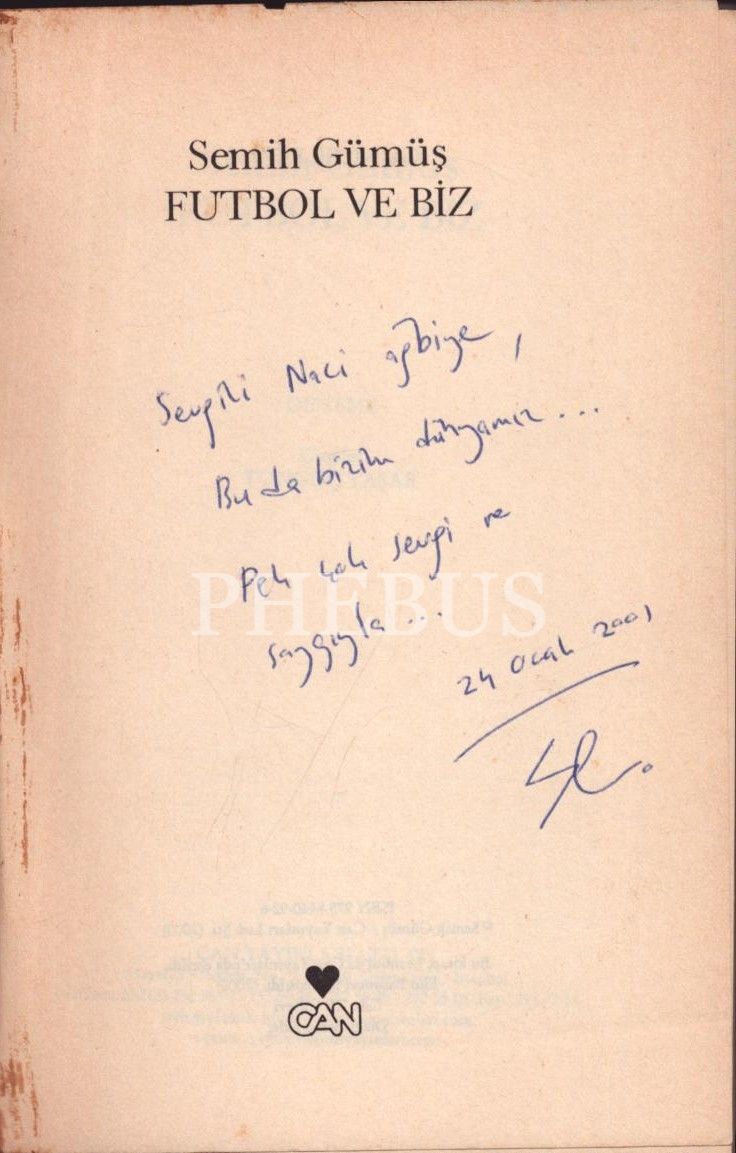 Semih Gümüş
FUTBOL VE BİZ
Sevgili Naci ağbiye,
Bu da bizim dünyamız...
Pek çok sevgi ve
saygıyla...
PHEBUS
24 Ocak 2001
CAN